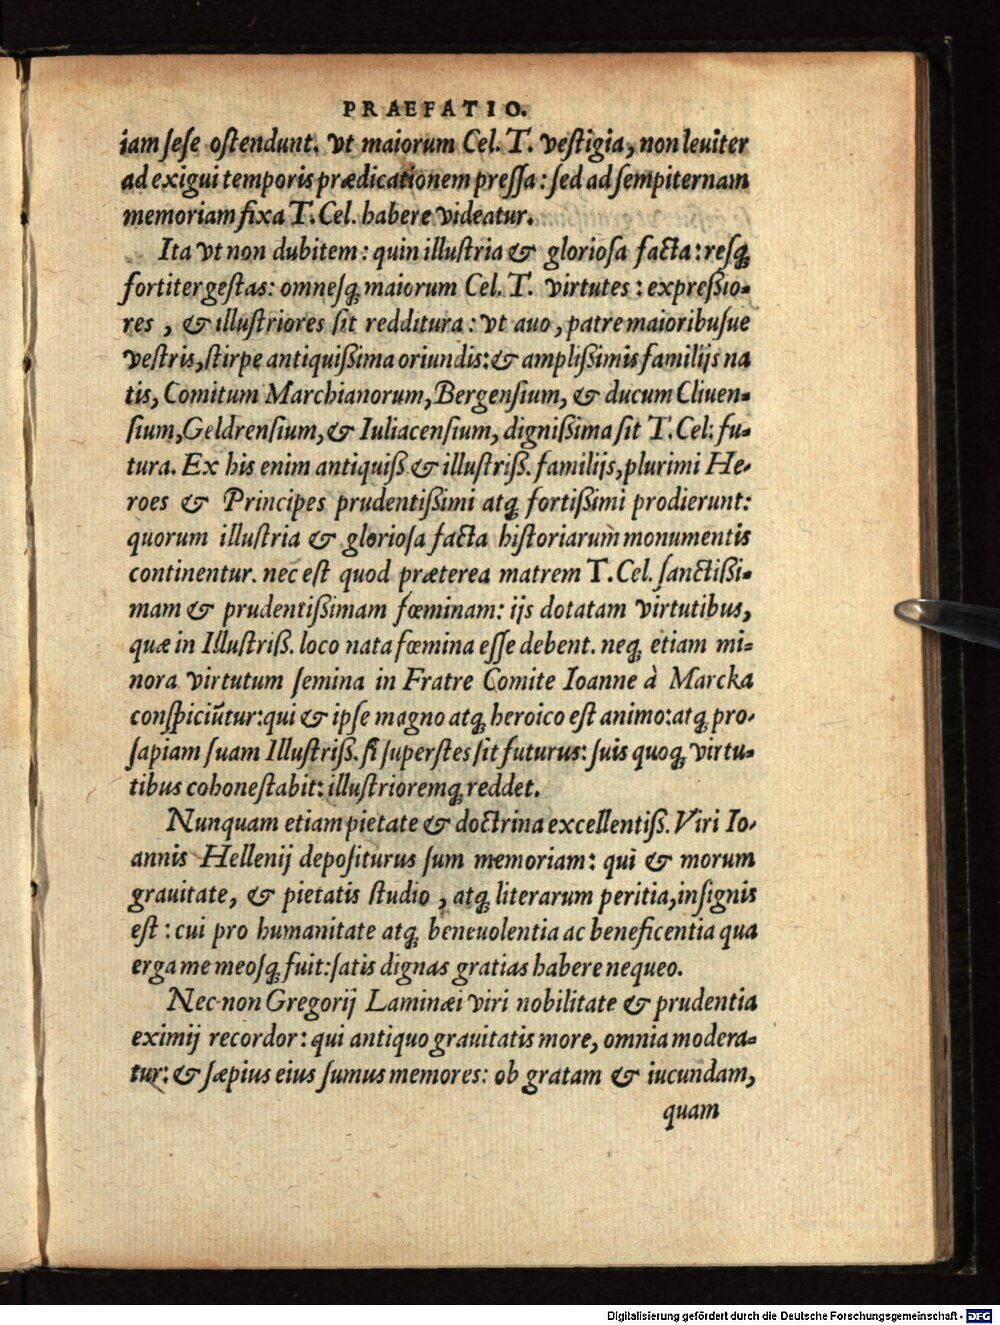 PRAEFATIO.
iam ſeſe oſtendunt. vt maiorum Cel. T. veſtigia, non leuiter
ad exigui temporis prædicationem preſſa: ſed ad ſempiternam
memoriam fixa T. Cel. habere videatur.
Ita vt non dubitem: quin illuſtria & glorioſa facta: reſq́;
fortiter geſtas: omneſq́; maiorum Cel. T. virtutes: expreßio-
res, & illuſtriores ſit redditura: vt auo, patre maioribuſue
veſtris, ſtirpe antiquißima oriundis: & amplißimis familijs na
tis, Comitum Marchianorum, Bergenſium, & ducum Cliuen-
ſium, Geldrenſium, & Iuliacenſium, dignißima ſit T. Cel: fu-
tura. Ex his enim antiquiß & illuſtriß. familijs, plurimi He-
roes & Principes prudentißimi atq́; fortißimi prodierunt:
quorum illuſtria & glorioſa facta hiſtoriarum monumentis
continentur. nec eſt quod præterea matrem T. Cel. ſanctißi-
mam & prudentißimam fœminam: ijs dotatam virtutibus,
quæ in Illuſtriß. loco nata fœmina eſſe debent. neq́; etiam mi-
nora virtutum ſemina in Fratre Comite Ioanne à Marcka
conſpiciūtur: qui & ipſe magno atq́; heroico eſt animo: atq́; pro-
ſapiam ſuam Illuſtriß. ſi ſuperſtes ſit futurus: ſuis quoq́; virtu-
tibus cohoneſtabit: illuſtrioremq́; reddet.
Nunquam etiam pietate & doctrina excellentiß. Viri Io-
annis Hellenij depoſiturus ſum memoriam: qui & morum
grauitate, & pietatis ſtudio, atq́; literarum peritia, inſignis
eſt: cui pro humanitate atq́; beneuolentia ac beneficentia qua
erga me meoſq́; fuit: ſatis dignas gratias habere nequeo.
Nec non Gregorij Laminæi viri nobilitate & prudentia
eximij recordor: qui antiquo grauitatis more, omnia modera-
tur: & ſæpius eius ſumus memores: ob gratam & iucundam,
quam
Digitalisierung gefördert durch die Deutsche Forschungsgemeinschaft - DFG